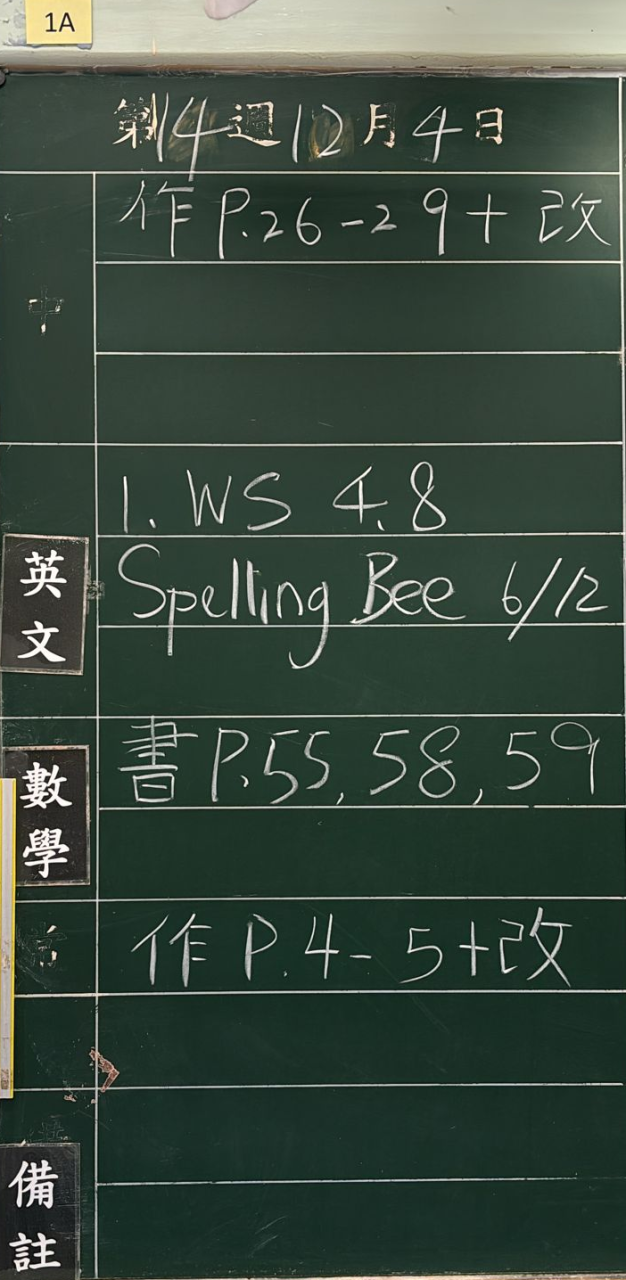 1A
第14週12月4日
中
作 P.26-29+改
1. WS 4.8
英文
Spelling Bee 6/12
數學
書 P.55, 58, 59
常
作 P.4-5+改
備註